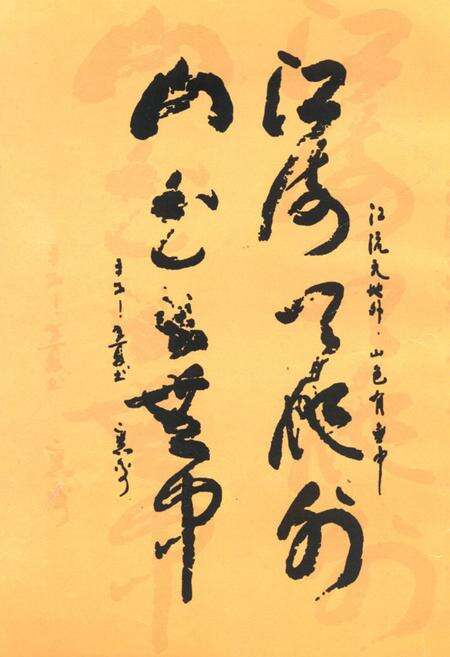 江流天地外·山色有無中
江流天地外
山色有無中